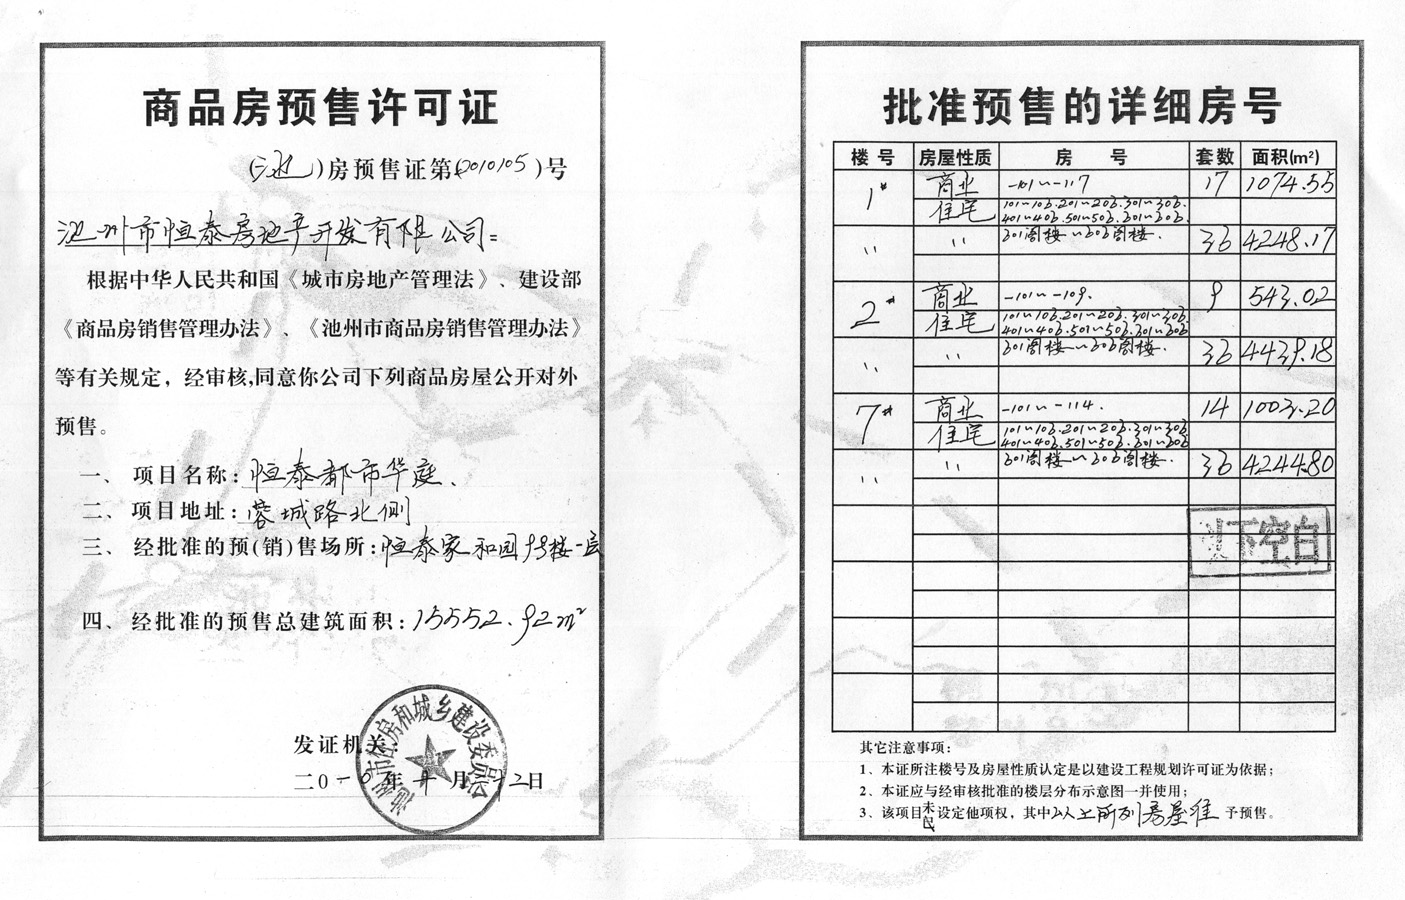 商品房预售许可证
(池)房预售证第(2010105)号
池州市恒泰房地产开发有限公司:
根据中华人民共和国《城市房地产管理法》、建设部
《商品房销售管理办法》、《池州市商品房销售管理办法》
等有关规定，经审核,同意你公司下列商品房屋公开对外
预售。
一、项目名称:恒泰都市华庭.
二、项目地址:蓉城路北侧
三、经批准的预(销)售场所:恒泰家和园9号楼一层
四、经批准的预售总建筑面积:15552.92m²
发证机关:
二0一0年十月十二日
池州市住房和城乡建设委员会
批准预售的详细房号
楼号 房屋性质 房号 套数 面积(m²)
1# 商业 -101~-117 17 1074.55
住宅 101~106.201~206.301~306.
401~406.501~506.601~606.
〃 〃 601阁楼~606阁楼. 36 4248.17
2# 商业 -101~-109. 9 543.02
住宅 101~106.201~206.301~306
401~406.501~506.601~606
〃 〃 601阁楼~606阁楼. 36 4439.18
7# 商业 -101~-114. 14 1003.20
住宅 101~106.201~206.301~306
401~406.501~506.601~606
〃 〃 601阁楼~606阁楼. 36 4244.80
以下空白
其它注意事项:
1、本证所注楼号及房屋性质认定是以建设工程规划许可证为依据;
2、本证应与经审核批准的楼层分布示意图一并使用;
3、该项目未设定他项权，其中以上所列房屋准予预售。